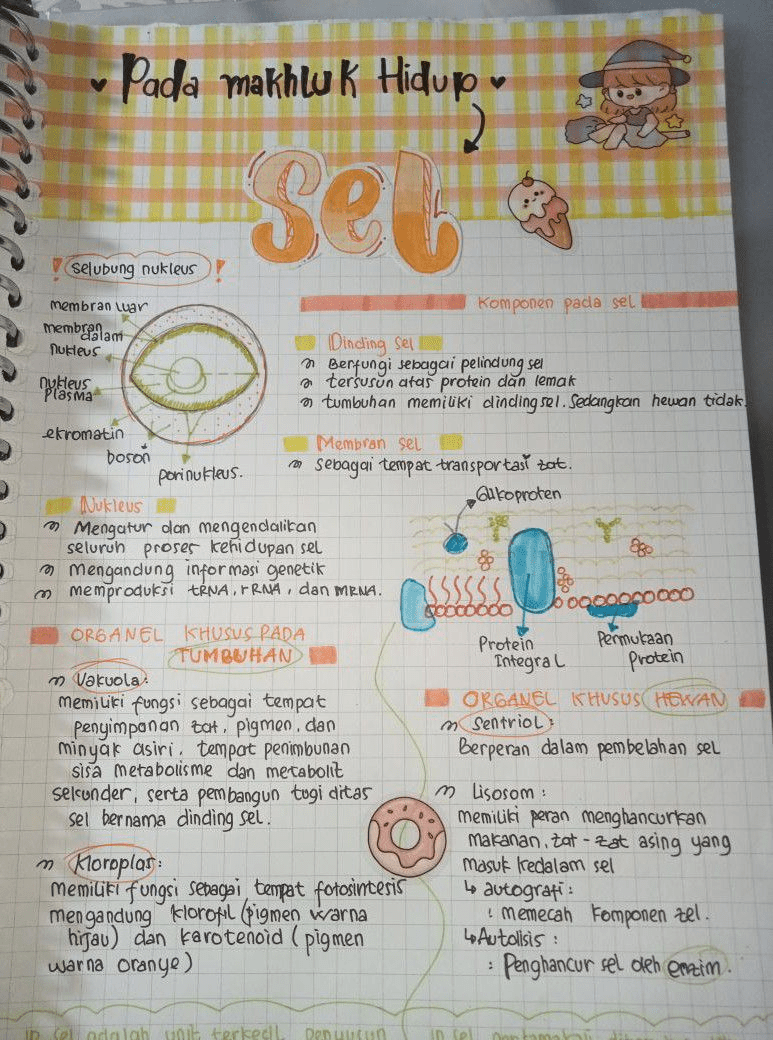 Pada makhluk Hidup
Sel
! selubung nukleus !
membran luar
membran
dalam
nukleus
nukleus
plasma
ekromatin
boson
porinukleus.
Komponen pada sel
Dinding sel
Berfungsi sebagai pelindung sel
tersusun atas protein dan lemak
tumbuhan memiliki dinding sel. Sedangkan hewan tidak.
Membran sel
sebagai tempat transportasi zat.
Nukleus
Mengatur dan mengendalikan
seluruh proses kehidupan sel
mengandung informasi genetik
memproduksi tRNA, rRNA, dan mRNA.
Glikoproten
Protein
Integral
Permukaan
Protein
ORGANEL KHUSUS PADA
TUMBUHAN
Vakuola:
memiliki fungsi sebagai tempat
penyimpanan zat, pigmen, dan
minyak asiri, tempat penimbunan
sisa metabolisme dan metabolit
sekunder, serta pembangun tugiditas
sel bernama dinding sel.
Kloroplas:
memiliki fungsi sebagai tempat fotosintesis
mengandung klorofil (pigmen warna
hijau) dan karotenoid (pigmen
warna oranye)
ORGANEL KHUSUS HEWAN
Sentriol:
Berperan dalam pembelahan sel
Lisosom:
memiliki peran menghancurkan
makanan, zat-zat asing yang
masuk kedalam sel
↳ autografi:
: memecah komponen zel.
↳ Autolisis:
: Penghancur sel oleh enzim.
sel adalah unit terkecil penyusun
sel